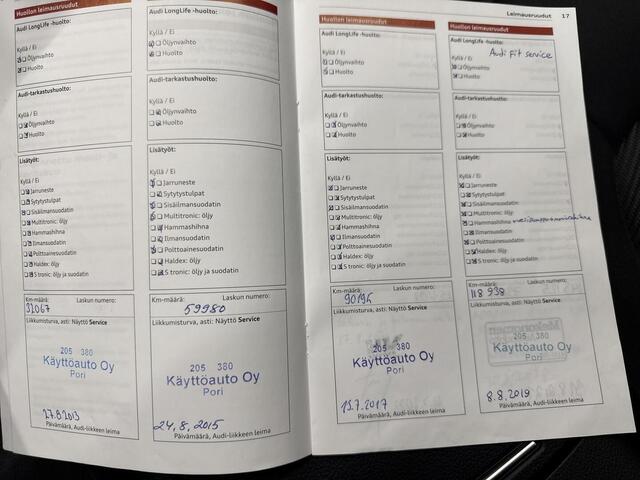 Huollon leimausruudut
Audi LongLife -huolto:
Kyllä / Ei
Öljynvaihto
Huolto
Audi-tarkastushuolto:
Kyllä / Ei
Öljynvaihto
Huolto
Lisätyöt:
Kyllä / Ei
Jarruneste
Sytytystulpat
Sisäilmansuodatin
Multitronic: öljy
Hammashihna
Ilmansuodatin
Polttoainesuodatin
Haldex: öljy
S tronic: öljy ja suodatin
Km-määrä: Laskun numero:
32067
Liikkumisturva, asti: Näyttö Service
205 380
Käyttöauto Oy
Pori
27.8.2013
Päivämäärä, Audi-liikkeen leima
Audi LongLife -huolto:
Kyllä / Ei
Öljynvaihto
Huolto
Audi-tarkastushuolto:
Kyllä / Ei
Öljynvaihto
Huolto
Lisätyöt:
Kyllä / Ei
Jarruneste
Sytytystulpat
Sisäilmansuodatin
Multitronic: öljy
Hammashihna
Ilmansuodatin
Polttoainesuodatin
Haldex: öljy
S tronic: öljy ja suodatin
Km-määrä: Laskun numero:
59980
Liikkumisturva, asti: Näyttö Service
205 380
Käyttöauto Oy
Pori
24.8.2015
Päivämäärä, Audi-liikkeen leima
Leimausruudut 17
Huollon leimausruudut
Audi LongLife -huolto:
Kyllä / Ei
Öljynvaihto
Huolto
Audi-tarkastushuolto:
Kyllä / Ei
Öljynvaihto
Huolto
Lisätyöt:
Kyllä / Ei
Jarruneste
Sytytystulpat
Sisäilmansuodatin
Multitronic: öljy
Hammashihna
Ilmansuodatin
Polttoainesuodatin
Haldex: öljy
S tronic: öljy ja suodatin
Km-määrä: Laskun numero:
Liikkumisturva, asti: Näyttö Service
205 380
Käyttöauto Oy
Pori
13.7.2017
Päivämäärä, Audi-liikkeen leima
Huollon leimausruudut
Audi LongLife -huolto:
Audi Fit service
Kyllä / Ei
Öljynvaihto
Huolto
Audi-tarkastushuolto:
Kyllä / Ei
Öljynvaihto
Huolto
Lisätyöt:
Kyllä / Ei
Jarruneste
Sytytystulpat
Sisäilmansuodatin
Multitronic: öljy
Hammashihna
Ilmansuodatin
Polttoainesuodatin
Haldex: öljy
S tronic: öljy ja suodatin
Km-määrä: Laskun numero:
118 938
Liikkumisturva, asti: Näyttö Service
205 380
Käyttöauto Oy
Pori
8.8.2019
Päivämäärä, Audi-liikkeen leima